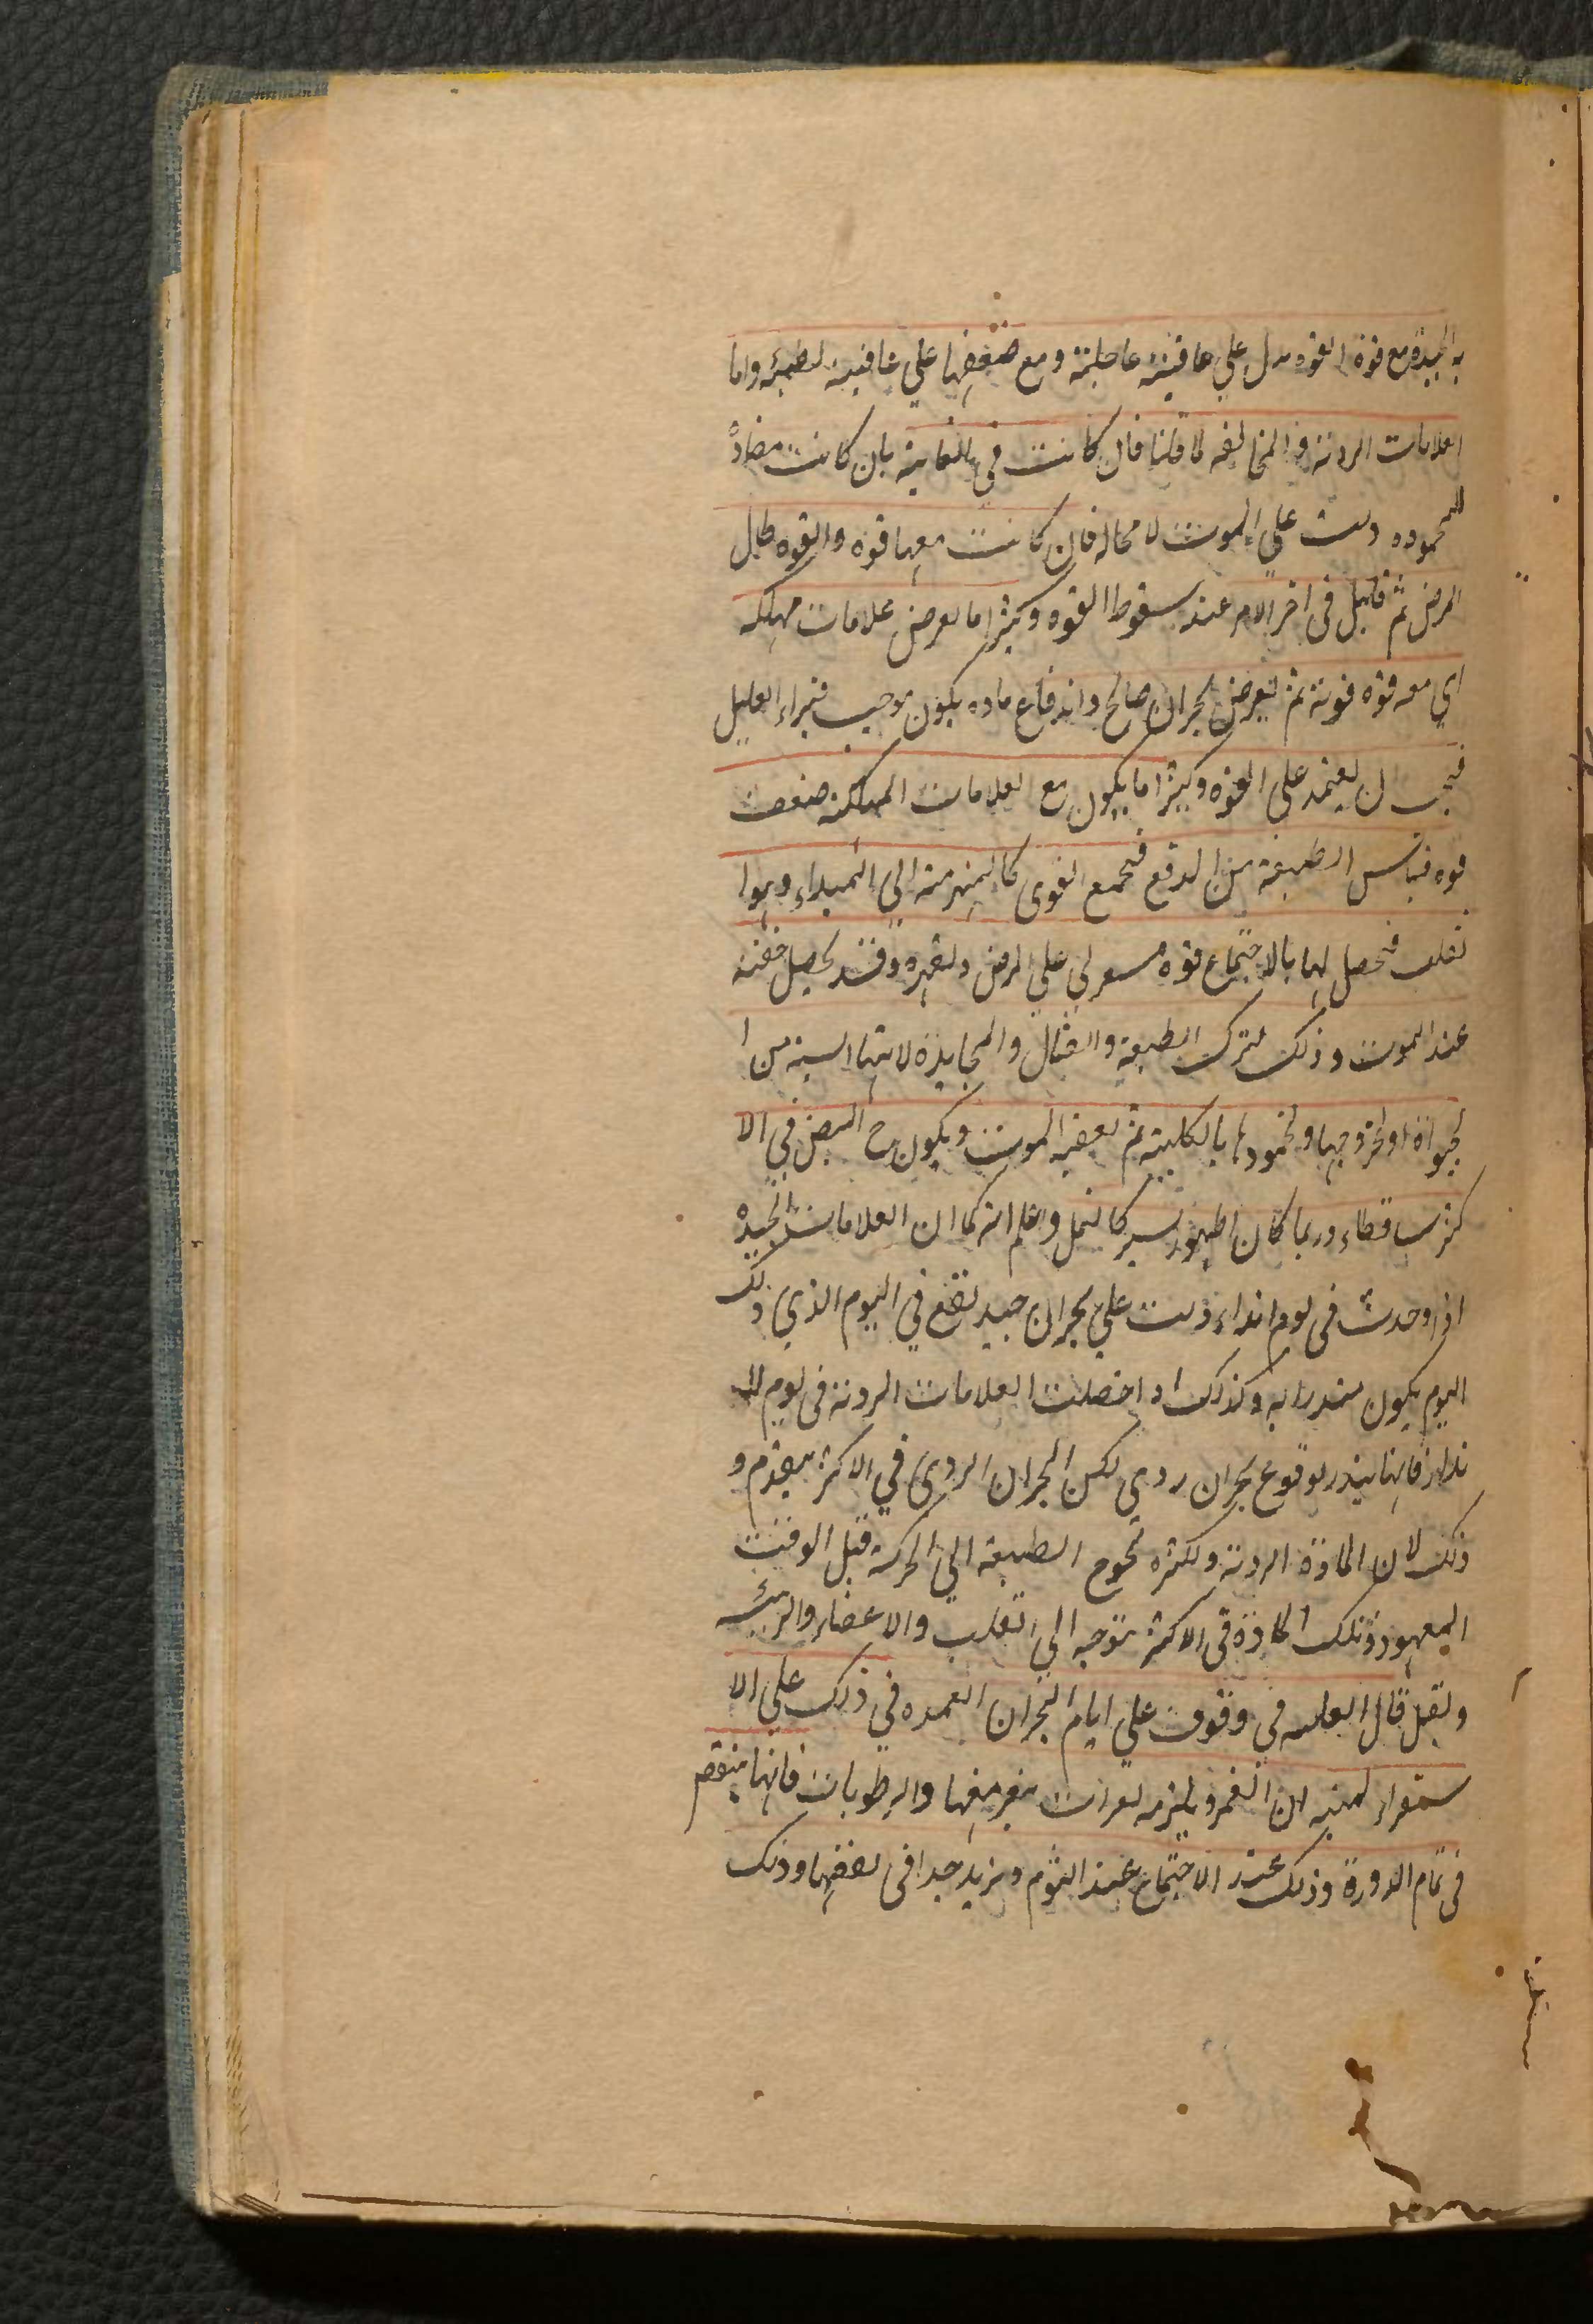 به الجيدة مع قوة القوه يدل علي عاقبته عاجلته ومع ضعفها علي عاقبته لطيئه واما
العلامات الردئة والمخالفه لما قلنا فان كانت في الغاية بان كانت مضادة
للمحموده دلت علي الموت لا محاله فان كانت معها قوه والقوه طال
المرض ثم قاتل في اخر الامر عند سقوط القوه وكثيرا ما يعرض علامات مهلكه
اي معه قوه قوية ثم يعرض بحران صالح واندفاع ماده يكون موجب فيبراء العليل
فيجب ان يعتمد علي القوه وكثيرا ما يكون مع العلامات المهلكة ضعف
قوه فيائس الطبيعة من الدفع فتجمع القوى كالمنهزمة الي المبداء وهو ا
لقلب فتحصل لها بالاجتماع قوه مستولي علي المرض وتقهره وقد يحصل خفة
عند الموت وذلك لترك الطبيعة والقتال والمجاهدة لانتهائسية من ا
لحيواة او لخروجها ولخمودها بالكلية ثم يعقبه الموت ويكون ح النبض في الا
كثر ساقطاء وربما كان اظهور سير كالنمل واعلم انه كما ان العلامات الجيده
اذا وحدث في يوم انذاء دلت علي بحران جيد يقع في اليوم الذي ذلك
اليوم يكون منذرا به وكذلك اذا حصلت العلامات الردئة في يوم الا
نذار فانها ينذر بوقوع بحران ردي لكن البحران الردي في الاكثر يتقدم و
ذلك لان المادة الردئة ولكثره تحوج الطبيعة الي الحركة قبل الوقت
المعهود وتلك المادة في الاكثر تتوجه الي القلب والاعضاء والرئيسه
وتقبل قال العله في وقوف علي ايام البحران العمده في ذلك علي الا
ستقراء لمنبه ان القمر ويلزمه تغرات بغيرمفها والرطوبات فانها ينقص
في تمام الدورة وذلك عند الاجتماع عند النوم ويزيد جدا في نصفها وذلك